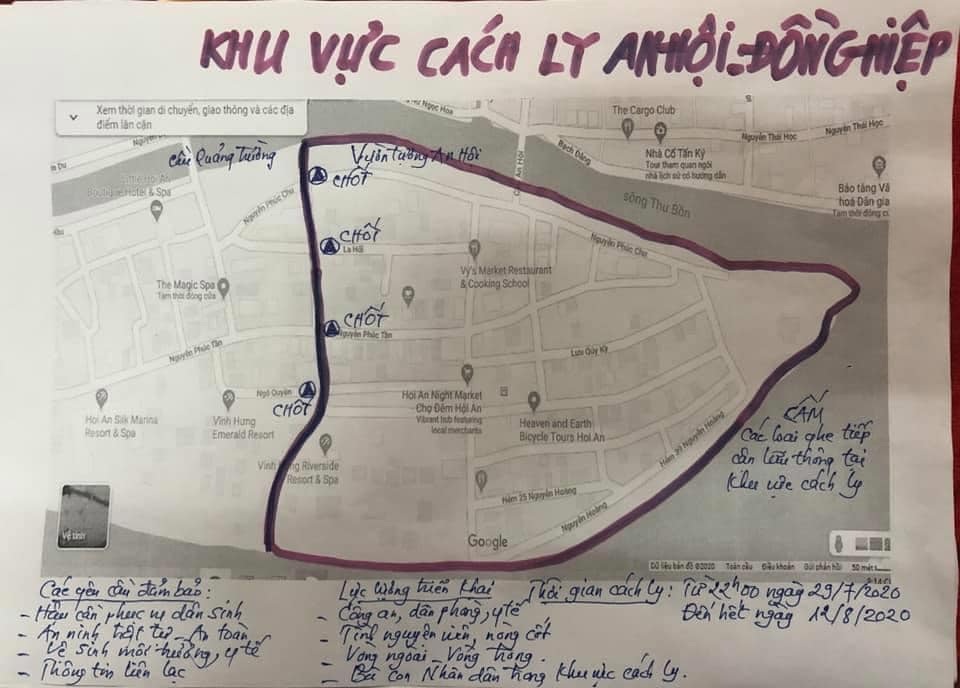 KHU VỰC CÁCH LY AN HỘI - ĐỒNG HIỆP
Xem thời gian di chuyển, giao thông và các địa
điểm lân cận
Ngọc Hoa
The Cargo Club
Nguyễn Thái Học
Nguyễn Thái Học
Bạch Đằng
Nhà Cổ Tấn Ký
Tour tham quan ngôi
nhà lịch sử có hướng dẫn
Bảo tàng Vă
hoá Dân gia
Tạm thời đóng cử
cầu Quảng Trường
Vườn tượng An Hội
CHỐT
Little Hoi An
Boutique Hotel & Spa
Nguyễn Phúc Chu
An Hội
sông Thu Bồn
CHỐT
La Hối
Nguyễn Phúc Chu
Vy's Market Restaurant
& Cooking School
The Magic Spa
Tạm thời đóng cửa
CHỐT
Nguyễn Phúc Tần
Nguyễn Phúc Tần
Lưu Quý Kỳ
Ngô Quyền
CHỐT
Hoi An Silk Marina
Resort & Spa
Vinh Hung
Emerald Resort
Hoi An Night Market
Chợ Đêm Hội An
Vibrant hub featuring
local merchants
Heaven and Earth
Bicycle Tours Hoi An
Vinh Hung Riverside
Resort & Spa
Hẻm 39 Nguyễn Hoàng
CẤM
Các loại ghe tiếp
cận lưu thông tại
Khu vực cách ly
Hẻm 25 Nguyễn Hoàng
Nguyễn Hoàng
Vệ tinh
Google
Dữ liệu bản đồ ©2020 Toàn cầu Điều khoản Gửi phản hồi 50 mét
Các yêu cầu đảm bảo:
- Hậu cần phục vụ dân sinh
- An ninh trật tự - An toàn
- Vệ sinh môi trường, y tế
- Thông tin liên lạc
Lực lượng triển khai
- Công an, dân phòng, y tế
- Tình nguyện viên, nòng cốt
- Vòng ngoài - Vòng trong.
- Bà con Nhân dân trong khu vực cách ly.
Thời gian cách ly: Từ 22h00 ngày 29/7/2020
Đến hết ngày 12/8/2020